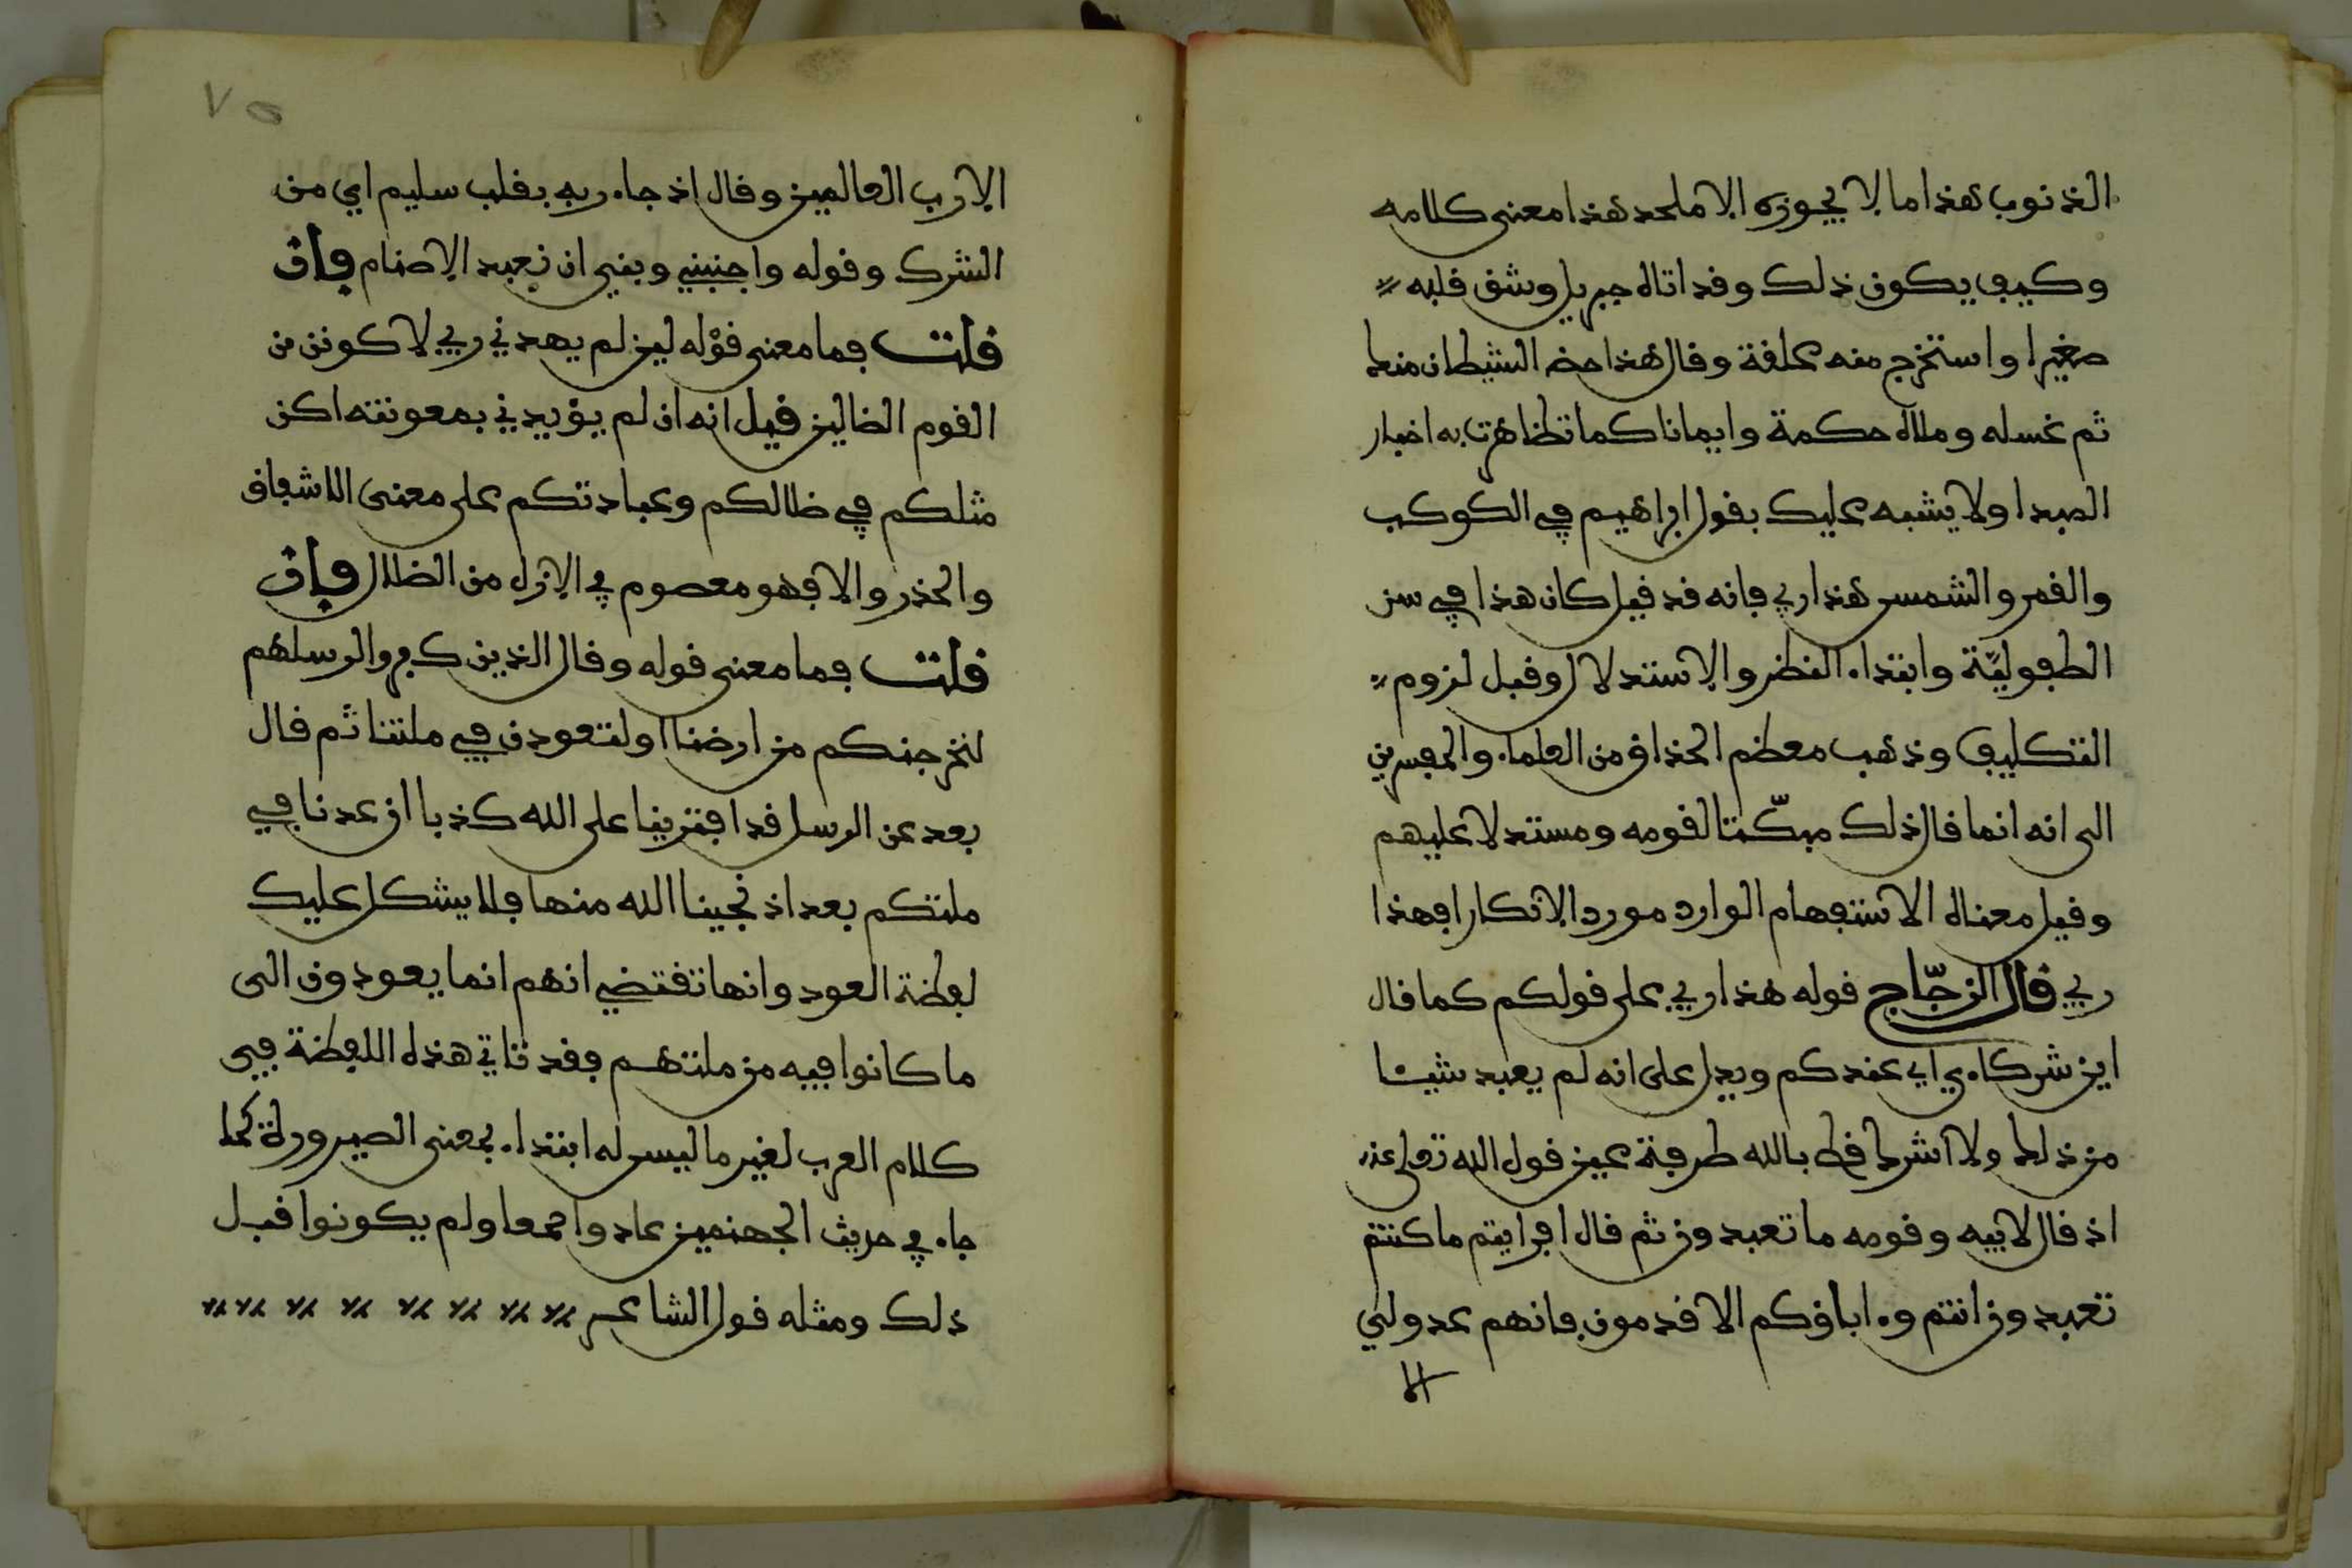 الذنوب هذا ما لا يجوزه الا ملحد هذا معنى كلامه
وكيف يكون ذلك وقد اتاه جبريل وشق قلبه
صغيرا واستخرج منه علقة وقال هذا حظ الشيطان منك
ثم غسله وملاه حكمة وايمانا كما تظاهرت به اخبار
المبدا ولا يشبه عليك بقول ابراهيم في الكوكب
والقمر والشمس هذا ربي فانه قد قيل كان هذا في سن
الطفوليّة وابتداء النظر والاستدلال وقبل لزوم
التكليف وذهب معظم الحذاق من العلماء والمفسرين
الى انه انما قال ذلك مبكّتا لقومه ومستدلا عليهم
وقيل معناه الاستفهام الوارد مورد الانكار افهذا
ربي قال الزجّاج قوله هذا ربي على قولكم كما قال
اين شركاءي اي عندكم ويدل على انه لم يعبد شيئا
من ذلك ولا اشرك قط بالله طرفة عين قول الله تعلى عنه
اذ قال لابيه وقومه ما تعبدون ثم قال افرايتم ما كنتم
تعبدون انتم وءاباؤكم الاقدمون فانهم عدو لي
الا
٧٥
الا رب العالمين وقال اذ جاء ربه بقلب سليم اي من
الشرك وقوله واجنبني وبني ان نعبد الاصنام فإن
قلت فما معنى قوله لين لم يهدني ربي لاكونن من
القوم الضالين قيل انه ان لم يؤيدني بمعونته اكن
مثلكم في ضلالكم وعبادتكم على معنى الاشفاق
والحذر والا فهو معصوم في الازل من الضلال فإن
قلت فما معنى قوله وقال الذين كفروا لرسلهم
لنخرجنكم من ارضنا او لتعودن في ملتنا ثم قال
بعد عن الرسل قد افترينا على الله كذبا ان عدنا في
ملتكم بعد اذ نجينا الله منها فلا يشكل عليك
لفظة العود وانها تقتضي انهم انما يعودون الى
ما كانوا فيه من ملتهم فقد تاتي هذه اللفظة في
كلام العرب لغير ما ليس له ابتداء بمعنى الصيرورة كما
جاء في حديث الجهنمين عادوا حمما ولم يكونوا قبل
ذلك ومثله قول الشاعر